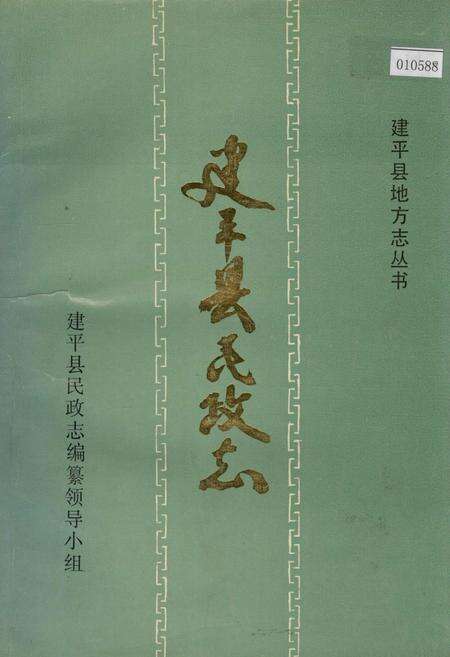 010588
建平县地方志丛书
建平县民政志
建平县民政志编纂领导小组